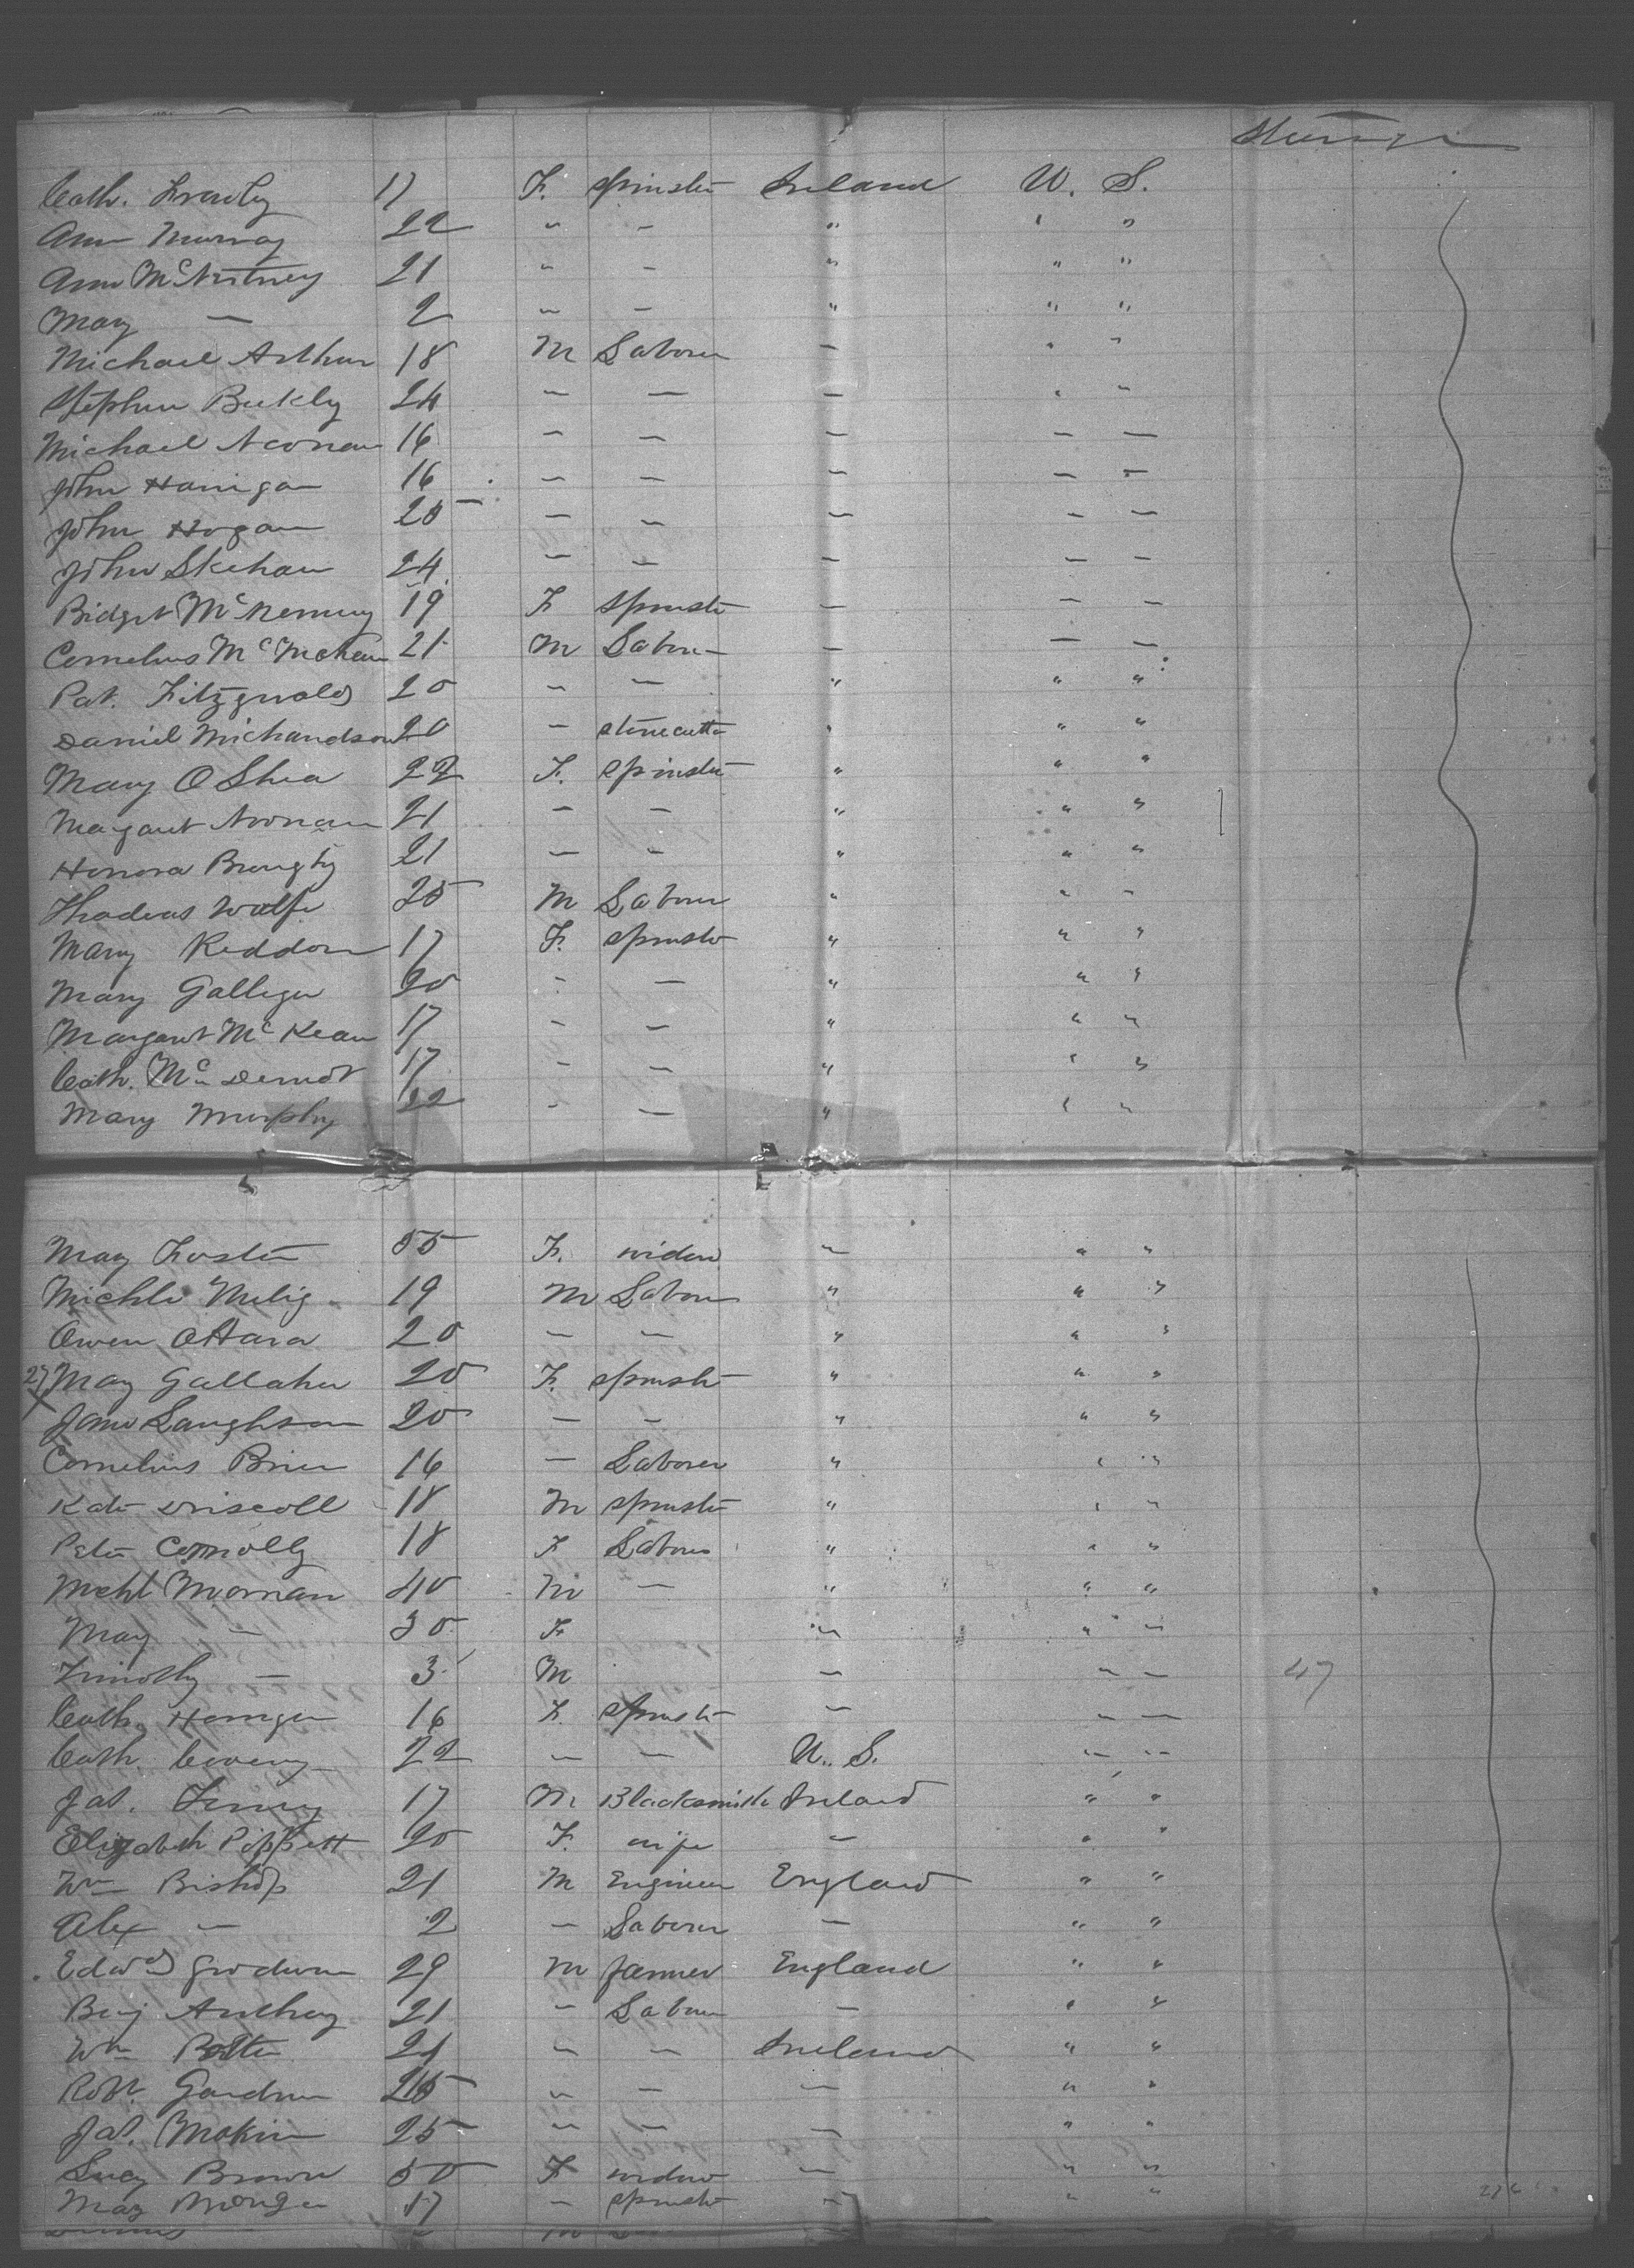 Steerage
Cath. Frawly 17 F. Spinster Ireland U. S.
Ann Murray 22 " - " " "
Ann McNertney 21 " - " " "
Mary — 2 - - " " "
Michael Arthur 18 M Laborer - " "
Stephen Buckly 24 - - - " "
Michael Noonan 16 - - - - -
John Hanigan 16 - - - - -
John Hogan 25 - - - - -
John Skehan 24 - - - - -
Bidget McNemny 19 F Spinster - - -
Cornelius McMahan 21 M Laborer - - -
Pat. Fitzgerald 20 - - " " "
Daniel Michandson 20 - stonecutter " " "
Mary O Shea 22 F. Spinster " " "
Magaret Noonan 21 - - " " "
Honora 21 - - " " "
Thadeus Wolfe 25 M Laborer " " "
Mary Reddon 17 F. Spinster " " "
Mary Galleger 20 - - " " "
Margaret McKean 17 - - " " "
Cath. McDermot 17 - - " " "
Mary Murphy 22 - - " " "
May Foster 55 F. widow - " "
19 M Laborer " " "
Owen OHara 20 - - " " "
27 May Gallaher 20 F. Spinster " " "
X Jane Laughson 20 - - " " "
Cornelius Brien 16 - Laborer " " "
Kate Driscoll 18 M Spinster " " "
Peter Connolly 18 F Laborer " " "
Mchl Mornan 40 M - " " "
May - 30 F " " "
Timothy - 3 M - - - 47
Cath. 16 F. Spinster - - -
Cath. 22 - - U. S. - -
Jas. 17 M Blacksmith Ireland " "
Elizabeth Pippett 20 F. wife - " "
Wm Bishop 21 M Engineer England " "
Alex - 2 - Laborer - " "
Edwd Goodwin 29 M farmer England " "
Benj Anthony 21 - Laborer - " "
Wm Potter 21 - - Ireland " "
Robt. Gardner 25 - - - " "
Jas. Makin 25 - - - " "
Lucy Brown 50 F widow - " "
May 17 - Spinster - " "